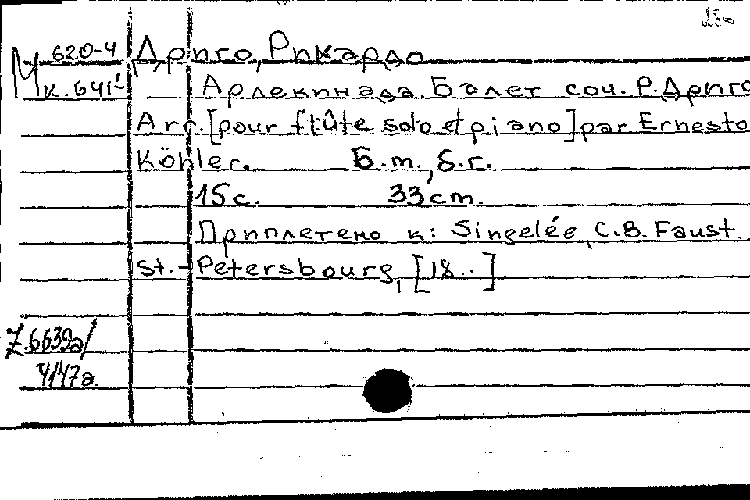 М 620-4
к. 641¹
Дриго, Рикардо
Арлекинада. Балет соч. Р. Дриго
Arr. [pour flûte solo et piano] par Ernesto
Köhler. Б.m., б.г.
15 с. 33 cm.
Приплетено к: Singelée, C.B. Faust.
St.-Petersbourg, [18..]
Z.6639a/
4147a